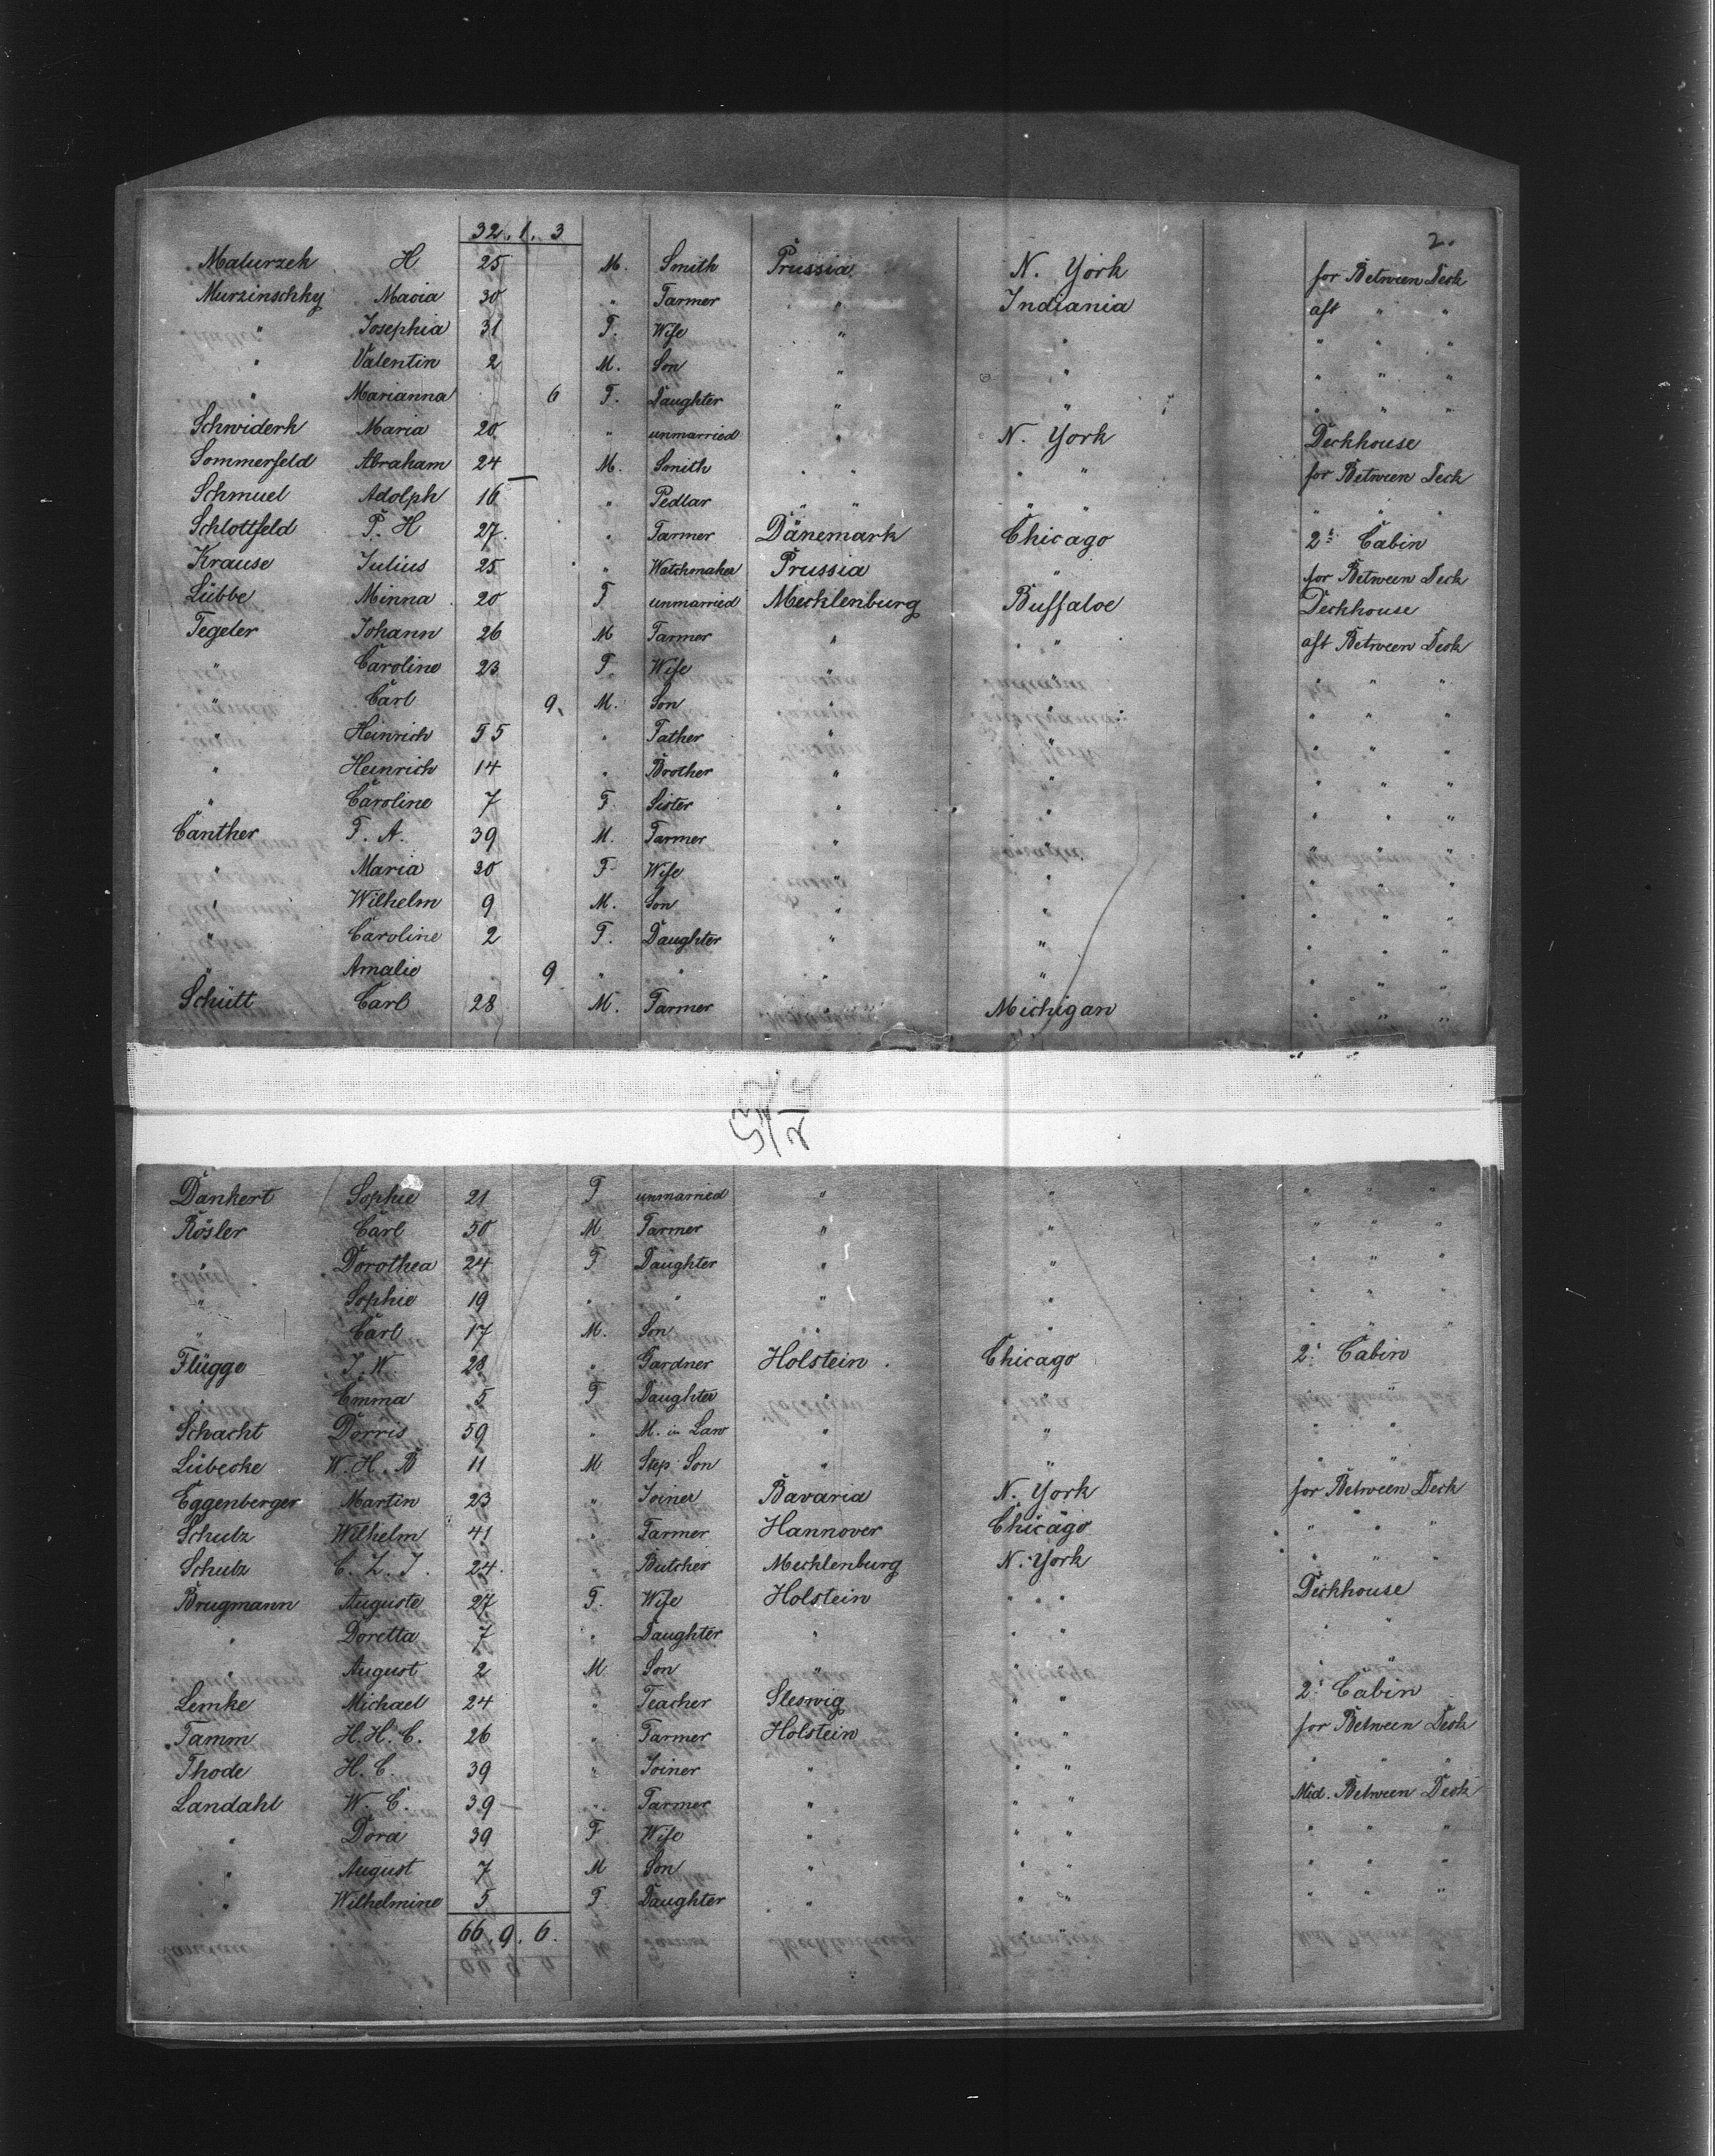 32. 1. 3
2.
Maturzek H 25 M. Smith Prussia N. York for Between Deck
Murzinschky Maria 30 " Farmer " Indiania aft " "
" Josephia 31 F. Wife " " " " "
" Valentin 2 M. Son " " " " "
" Marianna 6 F. Daughter " " " " "
Schwiderk Maria 20 " unmarried " N. York Deckhouse
Sommerfeld Abraham 24 M. Smith " " " " for Between Deck
Schmuel Adolph 16 " Pedlar " " " " " " "
Schlottfeld P. H 27. " Farmer Dänemark Chicago 2t Cabin
Krause Julius 25 " Watchmaker Prussia " for Between Deck
Lübbe Minna 20 F unmarried Mecklenburg Buffaloe Deckhouse
Tegeler Johann 26 M Farmer " " " aft Between Deck
" Caroline 23 F. Wife " " " " "
" Carl 9. M. Son " " " " "
" Heinrich 55 " Father " " " " "
" Heinrich 14 " Brother " " " " "
" Caroline 7 F. Sister " " " " "
Canther F. A. 39 M. Farmer " " " " "
" Maria 30 F Wife " " " " "
" Wilhelm 9 M. Son " " " " "
" Caroline 2 F. Daughter " " " " "
" Amalie 9 " " " " " " "
Schütt Carl 28 M. Farmer " Michigan " " "
Dankert Sophie 21 F unmarried " " " " "
Rösler Carl 50 M Farmer " " " " "
" Dorothea 24 F Daughter " " " " "
" Sophie 19 " " " " " " "
" Carl 17 M. Son " " " " "
Flügge J. W. 28 " Gardner Holstein . Chicago 2t Cabin
" Emma 5 F Daughter " " " "
Schacht Dorris 59 " M. in Law " " " "
Lübecke W. H. B 11 M Step Son " " " "
Eggenberger Martin 23 " Joiner Bavaria N. York for Between Deck
Schulz Wilhelm 41 " Farmer Hannover Chicago " " "
Schulz C. L. J. 24. " Butcher Mecklenburg N. York " " "
Brugmann Auguste 27 F. Wife Holstein " " Deckhouse
" Doretta 7 " Daughter " " " "
" August 2 M. Son " " " "
Lemke Michael 24 " Teacher Sleswig " " 2t Cabin
Tamm H. H. C. 26 " Farmer Holstein " " for Between Deck
Thode H. C. 39 " Joiner " " " " " "
Landahl W. C. 39 " Farmer " " " Mid. Between Deck
" Dora 39 F. Wife " " " " " "
" August 7 M Son " " " " " "
" Wilhelmine 5 F. Daughter " " " " " "
66. 9. 6.